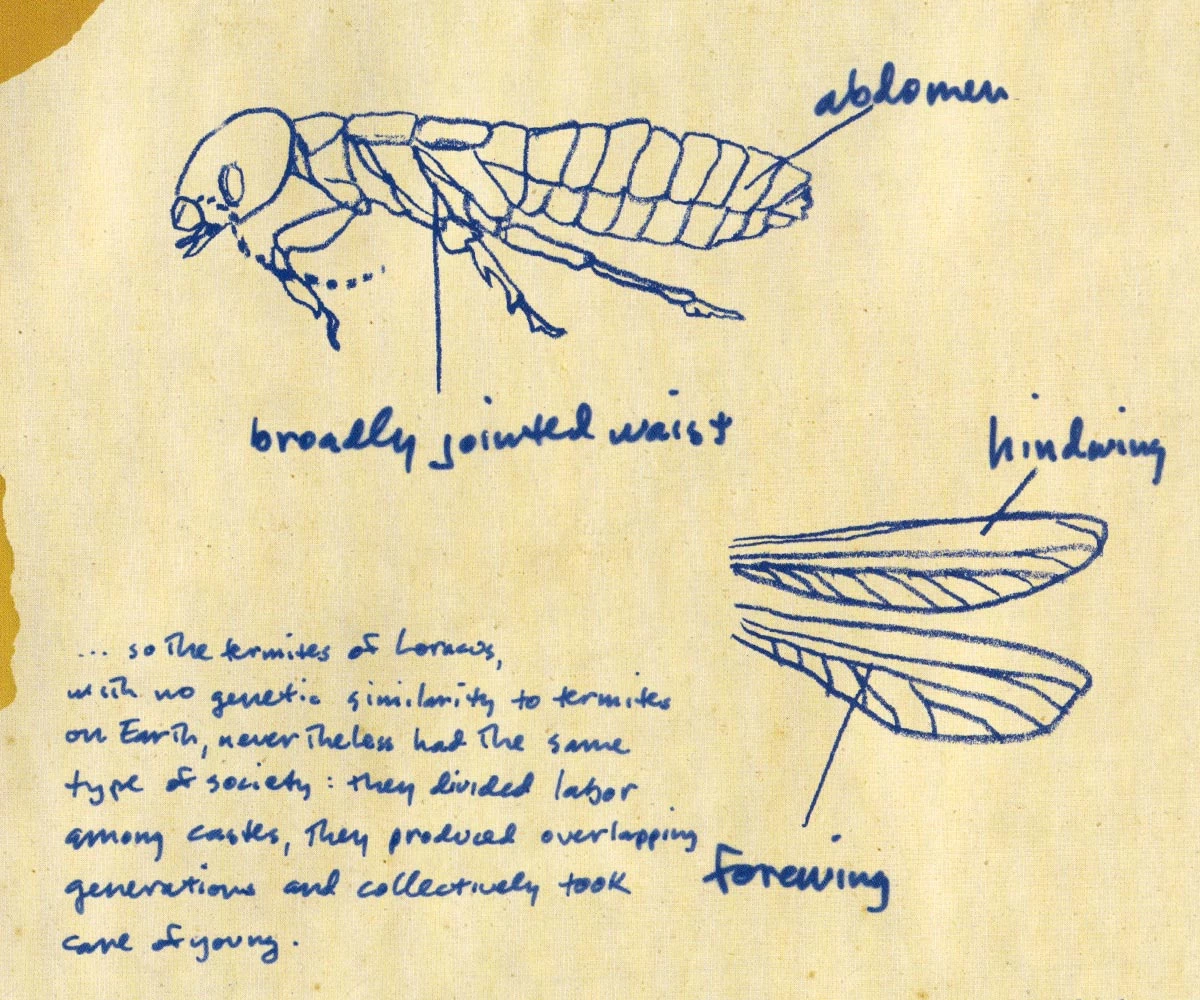 abdomen
broadly jointed waist
hindwing
... so the termites of
with no genetic similarity to termites
on Earth, nevertheless had the same
type of society: they divided labor
among castes, they produced overlapping
generations and collectively took
care of young.
forewing